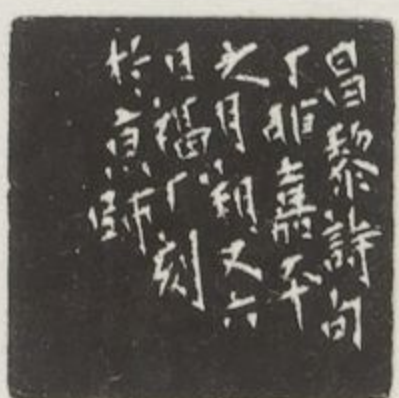 昌黎詩句
丁嘉平
之月朔又六
日福厂刻
於京師